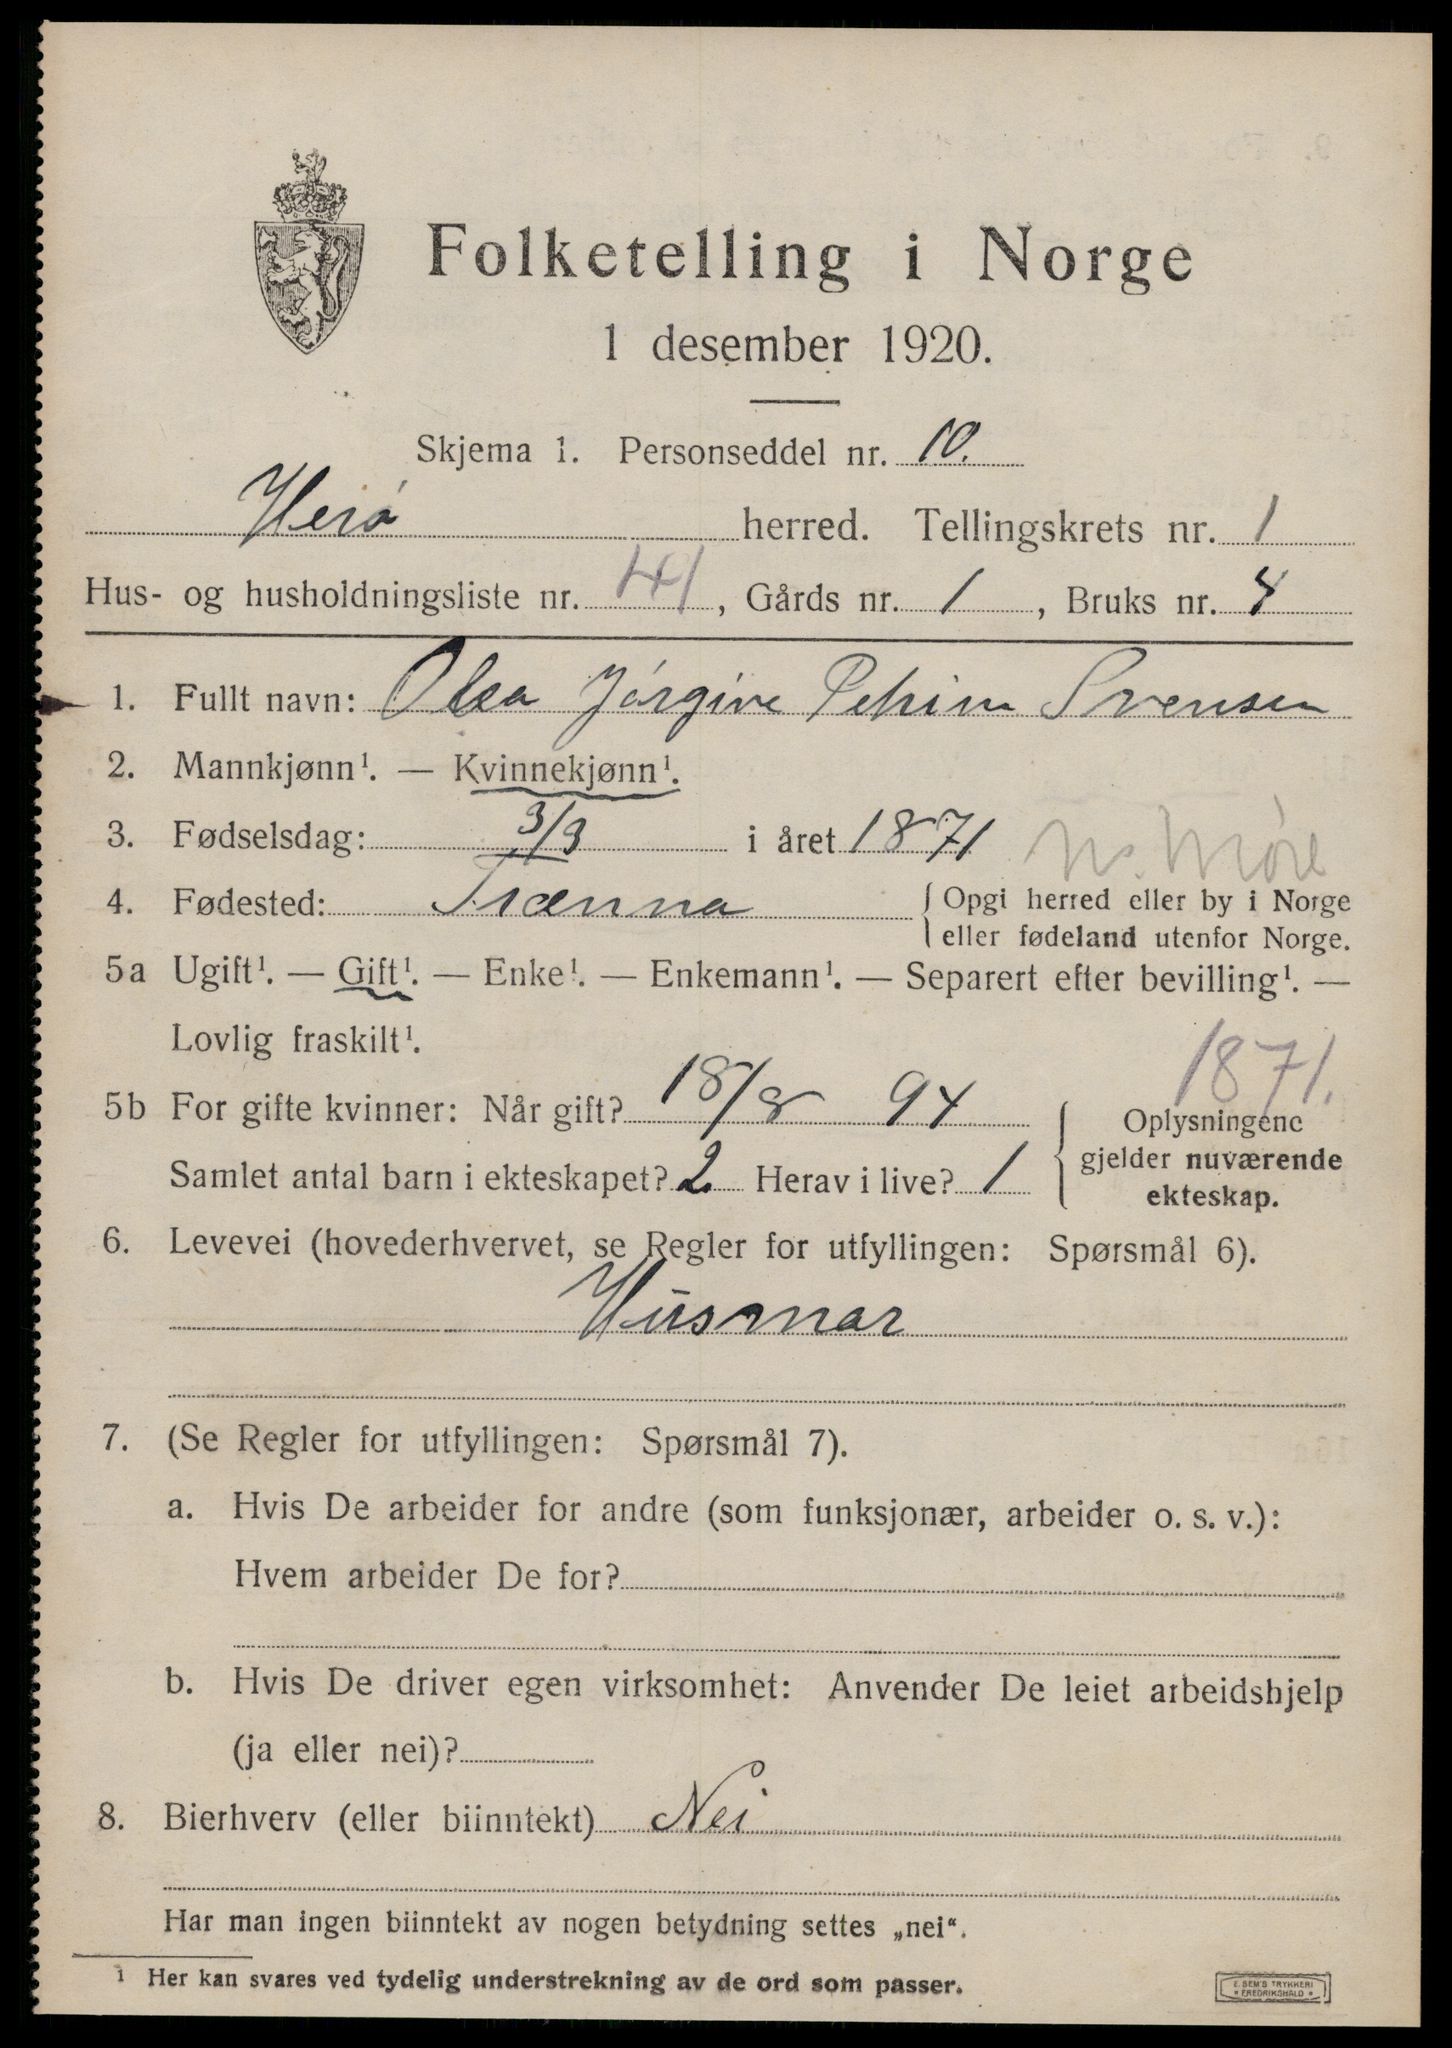 Folketelling i Norge
1 desember 1920.
Skjema 1. Personseddel nr. 10.
Herø herred. Tellingskrets nr. 1
Hus- og husholdningsliste nr. 41, Gårds nr. 1, Bruks nr. 4
1. Fullt navn: Olea Jørgine Svensen
2. Mannkjønn¹. — Kvinnekjønn¹.
3. Fødselsdag: 3/3 i året 1871 N. Møre
4. Fødested: Trænna { Opgi herred eller by i Norge
eller fødeland utenfor Norge.
5a Ugift¹. — Gift¹. — Enke¹. — Enkemann¹. — Separert efter bevilling¹. —
Lovlig fraskilt¹.
1871.
5b For gifte kvinner: Når gift? 18/8 94 { Oplysningene
Samlet antal barn i ekteskapet? 2. Herav i live? 1 gjelder nuværende
ekteskap.
6. Levevei (hovederhvervet, se Regler for utfyllingen: Spørsmål 6).
Husmor
7. (Se Regler for utfyllingen: Spørsmål 7).
a. Hvis De arbeider for andre (som funksjonær, arbeider o. s. v.):
Hvem arbeider De for?
b. Hvis De driver egen virksomhet: Anvender De leiet arbeidshjelp
(ja eller nei)?
8. Bierhverv (eller biinntekt) Nei
Har man ingen biinntekt av nogen betydning settes „nei“.
¹ Her kan svares ved tydelig understrekning av de ord som passer.
E. SEM'S TRYKKERI
* FREDRIKSHALD *